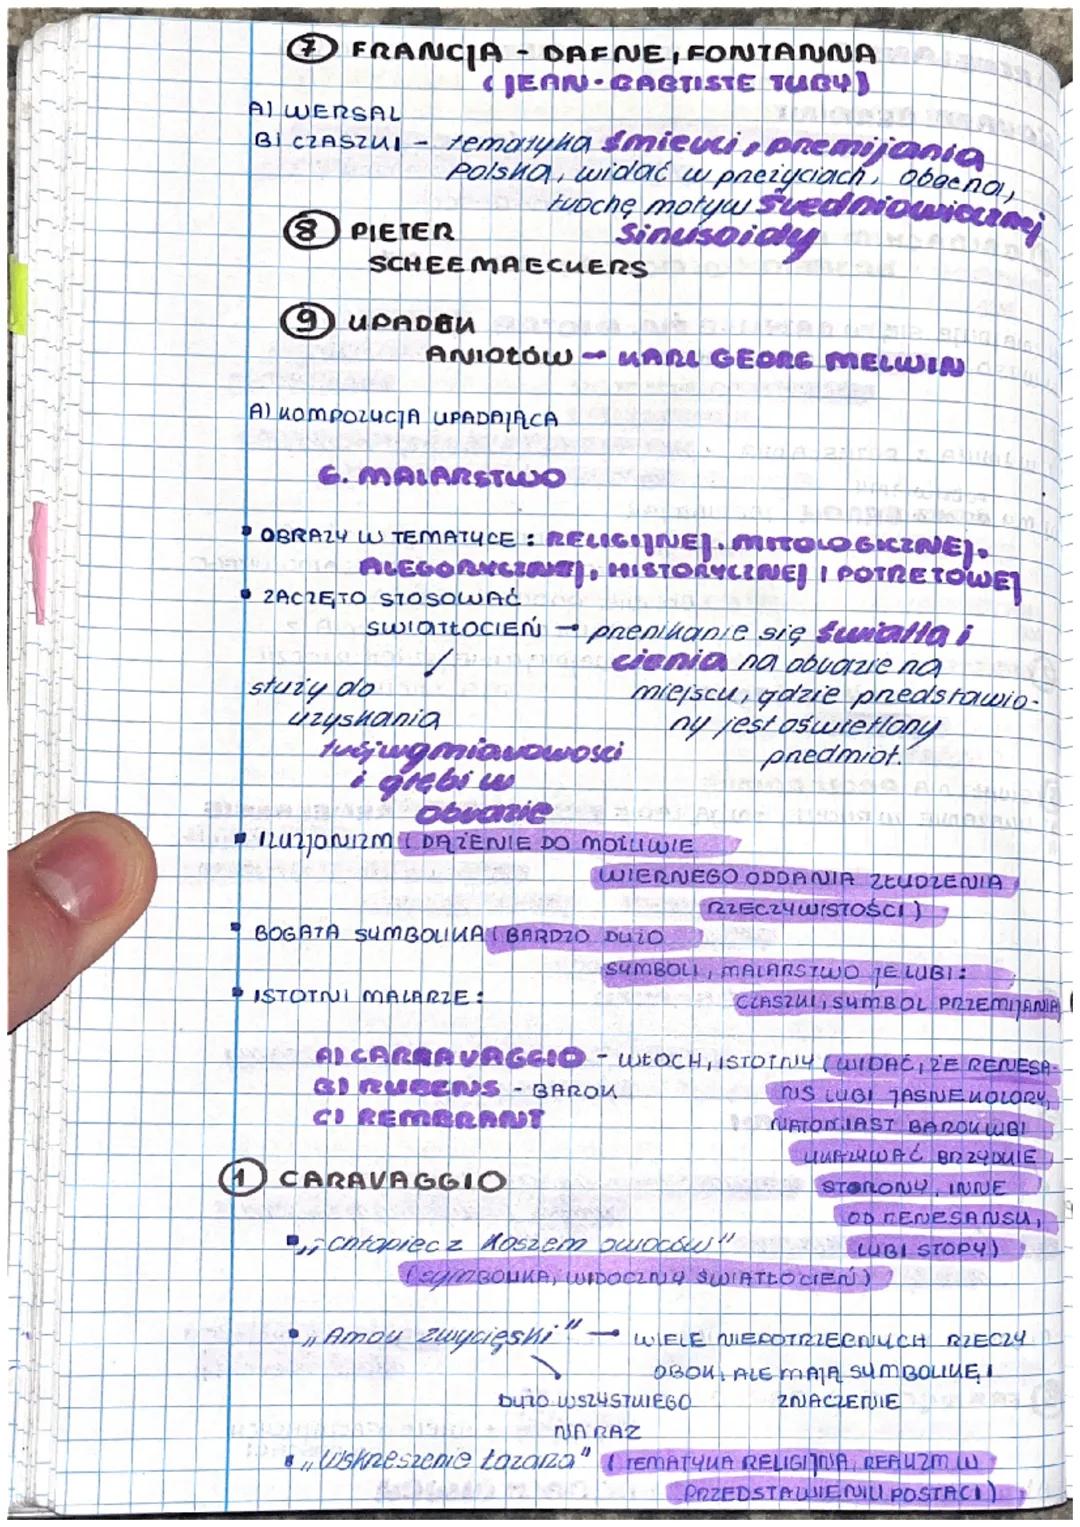 7 FRANCJA - DAFNE, FONTANNA
(JEAN-BABTISTE TUBY)
A) WERSAL
B) CZASZKI - tematyka śmierci, przemijania
Polska, widać w przeżyciach, obecna,
trochę motyw średniowiecznej
sinusoidy
8 PIETER
SCHEEMAECKERS
9 UPADEK
ANIOŁÓW - KARL GEORG MELWIN
A) KOMPOZYCJA UPADAJĄCA
6. MALARSTWO
• OBRAZY W TEMATYCE: RELIGIJNEJ, MITOLOGICZNEJ,
ALEGORYCZNEJ, HISTORYCZNEJ I POTRETOWEJ
• ZACZĘTO STOSOWAĆ
ŚWIATŁOCIEŃ → przenikanie się światła i
cienia na obrazie na
miejscu, gdzie przedstawio-
ny jest oświetlony
przedmiot.
służy do
uzyskania
trójwymiarowości
i głębi w
obrazie
• ILUZJONIZM (DĄŻENIE DO MOŻLIWIE
WIERNEGO ODDANIA ZŁUDZENIA
RZECZYWISTOŚCI)
• BOGATA SYMBOLIKA (BARDZO DUŻO
SYMBOLI, MALARSTWO JE LUBI:
CZASZKI, SYMBOL PRZEMIJANIA
• ISTOTNI MALARZE:
A) CARRAVAGGIO - WŁOCH, ISTOTNY (WIDAĆ, ŻE RENESA-
NS LUBI JASNE KOLORY,
NATOMIAST BAROK LUBI
UKAZYWAĆ BRZYDKIE
STORONY, INNE
OD RENESANSU,
LUBI STOPY)
B) RUBENS - BAROK
C) REMBRANT
1 CARAVAGGIO
• "Chłopiec z koszem owoców"
(SYMBOLIKA, WIDOCZNY ŚWIATŁOCIEŃ)
• "Amor zwycięski" → WIELE NIEPOTRZEBNYCH RZECZY
OBOK, ALE MAJĄ SYMBOLIKĘ I
ZNACZENIE
DUŻO WSZYSTKIEGO
NARAZ
• "Wskrzeszenie Łazarza" (TEMATYKA RELIGIJNA, REALIZM W
PRZEDSTAWIENIU POSTACI)